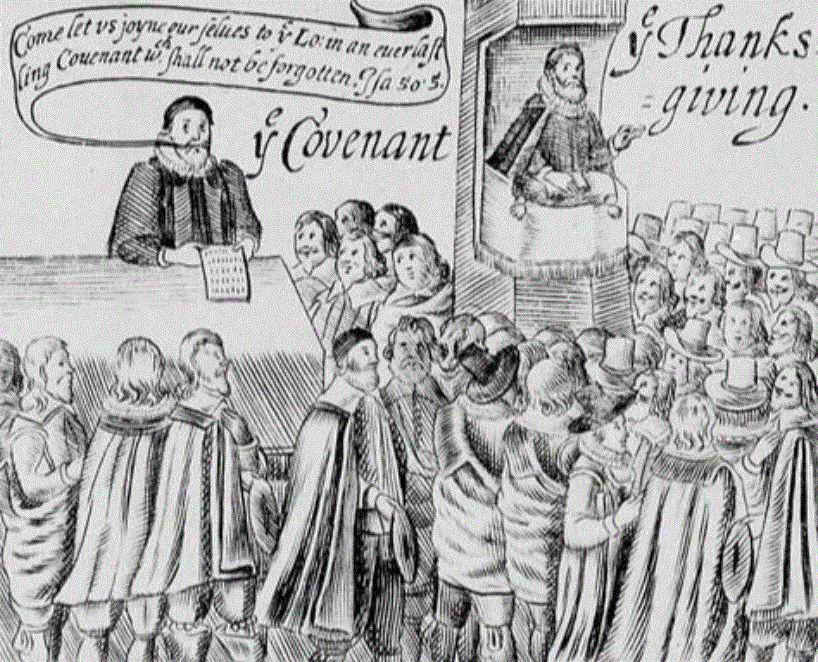 Come let vs joyne our ſelues to yᵉ Lo: in an euerlaſt
ling Couenant wᶜʰ ſhall not be forgotten. Jſa 50·5.
yᵉ Covenant
yᵉ Thanks
=giving.